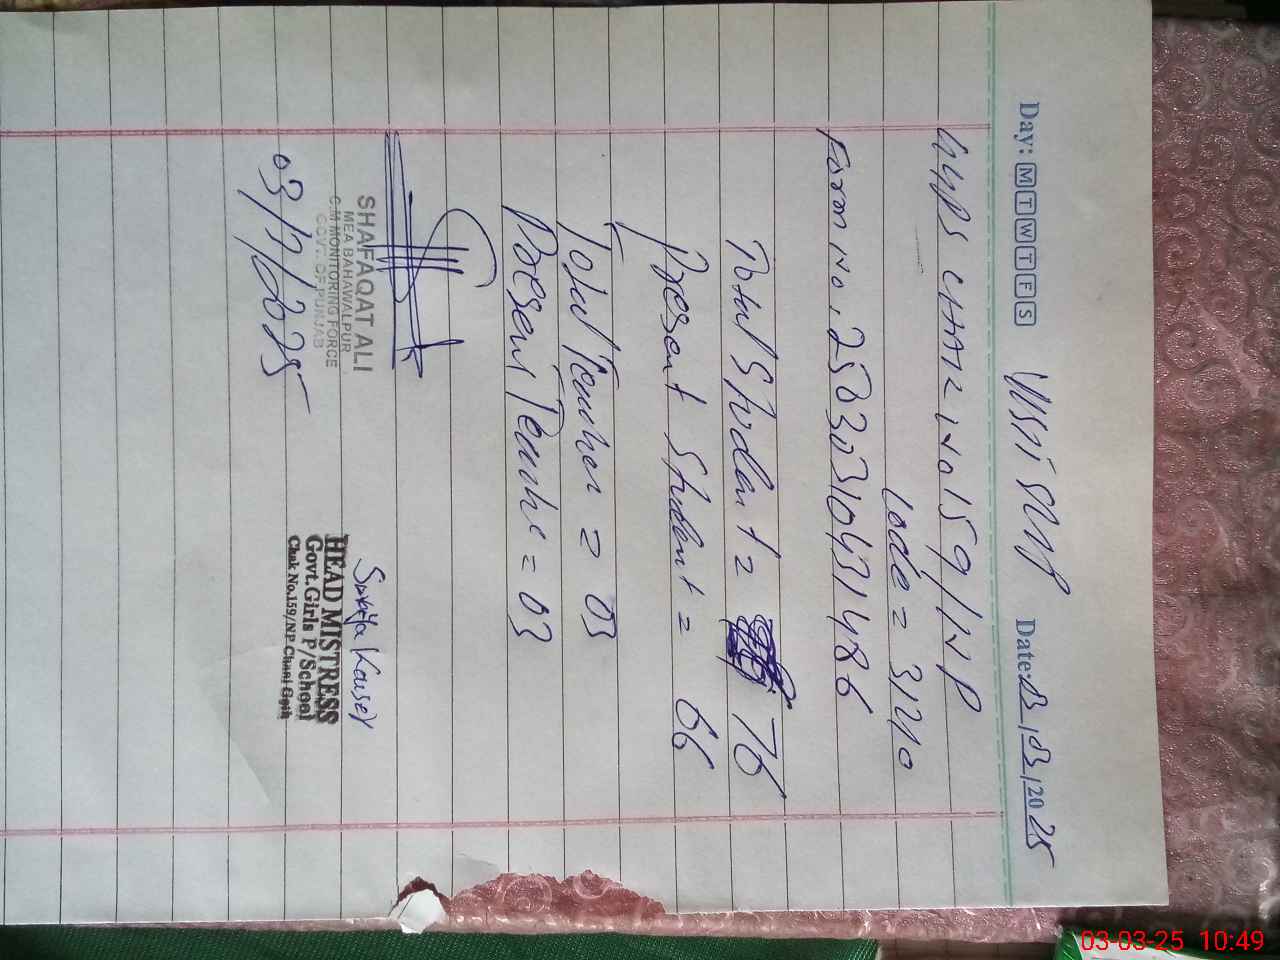 Day: M T W T F S Visit SLIP Date: 03/03/2025
GGPS CHAK No 159/NP
Code = 31210
Form No. 250303104431486
Total Student = 76
Present Student = 66
Total Teacher = 03
Present Teache = 03
SHAFAQAT ALI
MEA BAHAWALPUR
C.M MONITORING FORCE
GOVT. OF PUNJAB
03/03/2025
Surayya Kausar
HEAD MISTRESS
Govt. Girls P/School
Chak No.159/NP Chani Goth
03-03-25 10:49